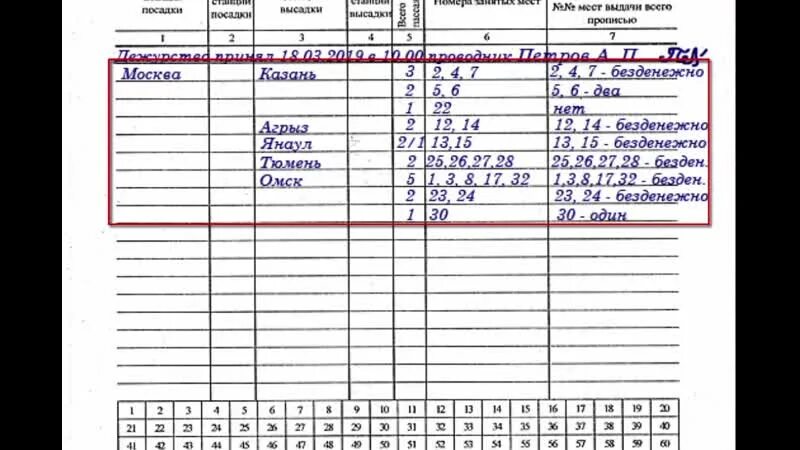 посадки станции посадки высадки станции высадки Всего Номера занятых мест №№ мест выдачи всего прописью
1 2 3 4 5 6 7
Дежурство принял 18.03.2019 в 10.00 проводник Петров А. П.
Москва Казань 3 2, 4, 7 2, 4, 7 - безденежно
2 5, 6 5, 6 - два
1 22 нет
Агрыз 2 12, 14 12, 14 - безденежно
Янаул 2/1 13,15 13, 15 - безденежно
Тюмень 2 25,26,27,28 25,26,27,28 - безден.
Омск 5 1, 3, 8, 17, 32 1,3,8,17,32 - безден.
2 23, 24 23, 24 - безденежно
1 30 30 - один
1 2 3 4 5 6 7 8 9 10 11 12 13 14 15 16 17 18 19 20
21 22 23 24 25 26 27 28 29 30 31 32 33 34 35 36 37 38 39 40
41 42 43 44 45 46 47 48 49 50 51 52 53 54 55 56 57 58 59 60